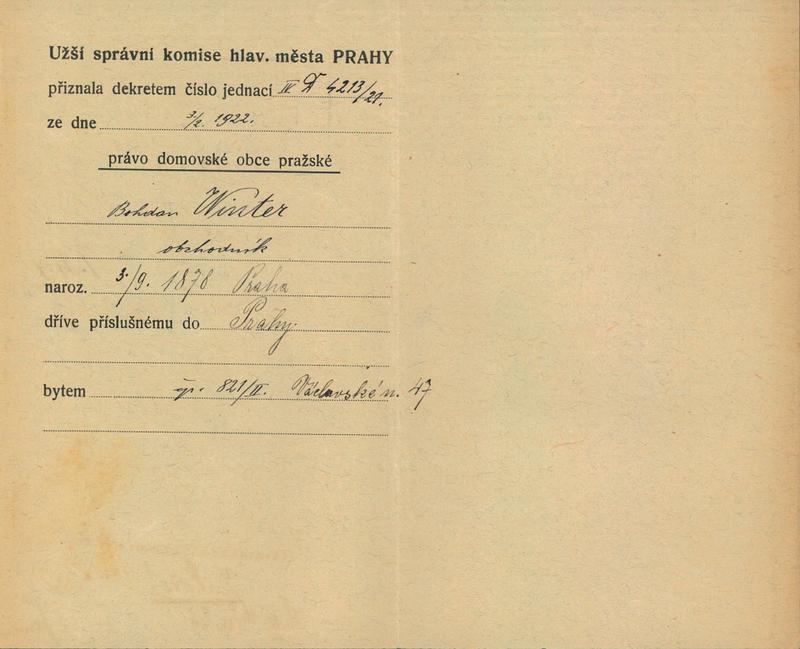 Užší správní komise hlav. města PRAHY
přiznala dekretem číslo jednací IV D 4213/21.
ze dne 3/2. 1922.
právo domovské obce pražské
Bohdan Winter
obchodník
naroz. 3./9. 1878 Praha
dříve příslušnému do Prahy
bytem čp. 821/II. Václavské n. 47